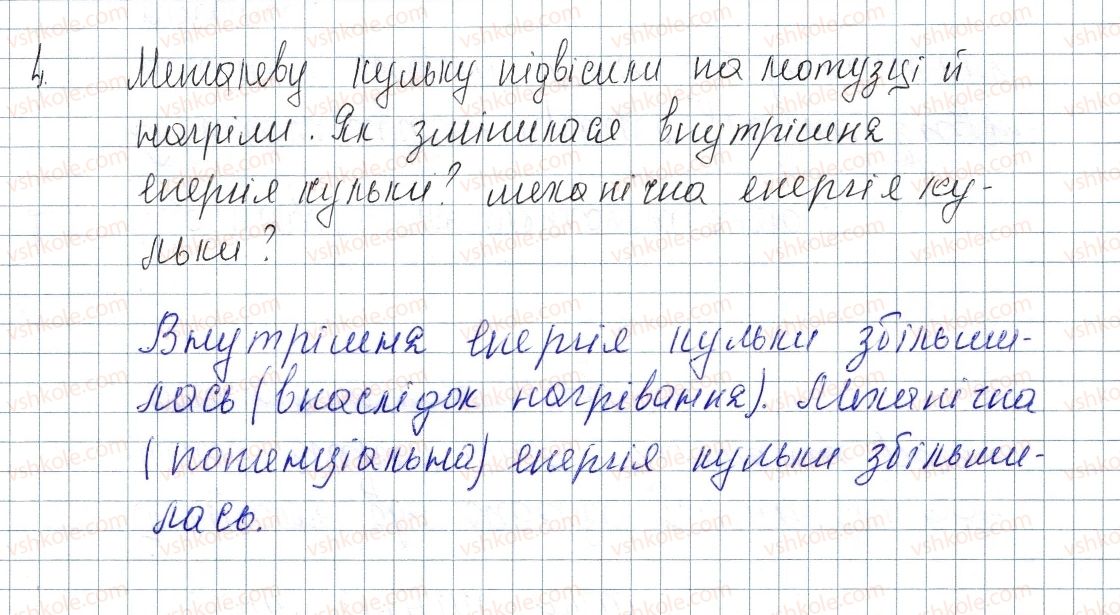 4. Металеву кульку підвісили на мотузці й
нагріли. Як змінилася внутрішня
енергія кульки? механічна енергія ку-
льки?
Внутрішня енергія кульки збільши-
лась (внаслідок нагрівання). Механічна
(потенціальна) енергія кульки збільши-
лась.